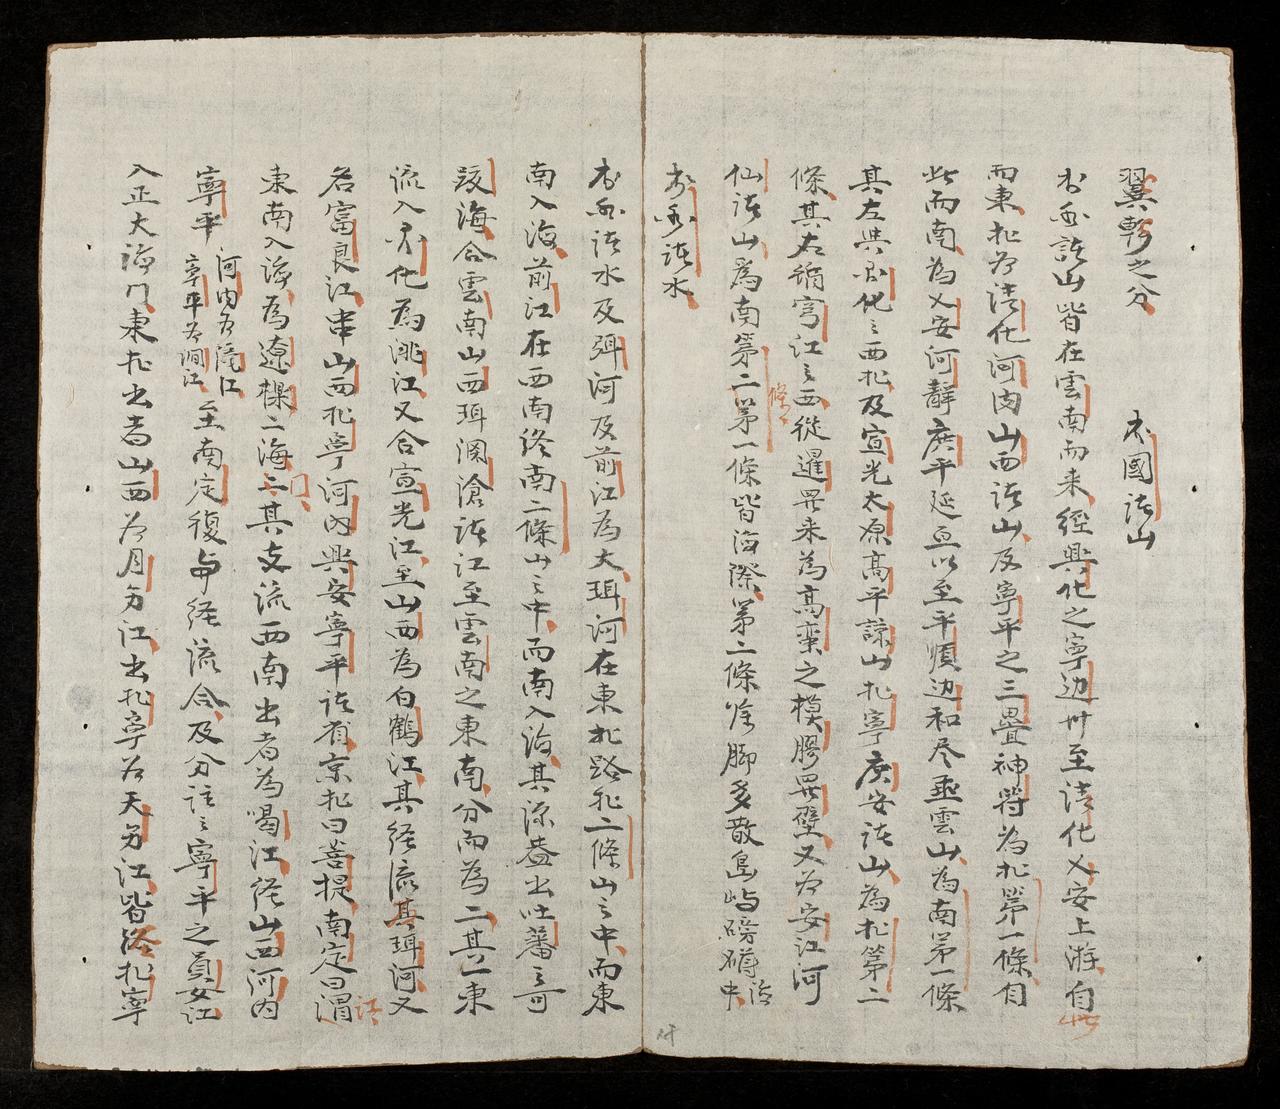 翼軫之分　本國諸山
本国諸山皆在雲南而来經興化之寧边州至清化乂安上游自此
而東北为清化河内山西諸山及寧平之三疊神符為北第一條自
此而南為乂安河靜廣平延亘以至平順边和尽垂雲山為南第一條
其左典興化之西北及宣光太原高平諒山北寧廣安諸山為北第二
條其右循穹江之西從暹界来為高蛮之模膠界壁又为安江河
仙諸山為南第二條第一條皆海際第二條餘脚多散島屿磅礴海中
本国諸水
本国諸水及珥河及前江為大珥河在東北路北二條山之中而東
南入海前江在西南終南二條山之中而南入海其源盡出吐蕃之可
跋海合雲南山西珥瀾滄諸江至雲南之東南分而為二其一東
流入界化為洮江又合宣光江至山西為白鶴江其経流其珥河又
名富良江串山西北寧河内興安寧平諸省京北曰菩提南定曰渭
東南入海為遼樑二海口其支流西南出者為喝江経山西河内
寧平河内为濁江寧平为澗江至南定復与経流合及分注之寧平之貞女江
入正大海门東北出者山西为月另江出北寧为天另江皆終北寧